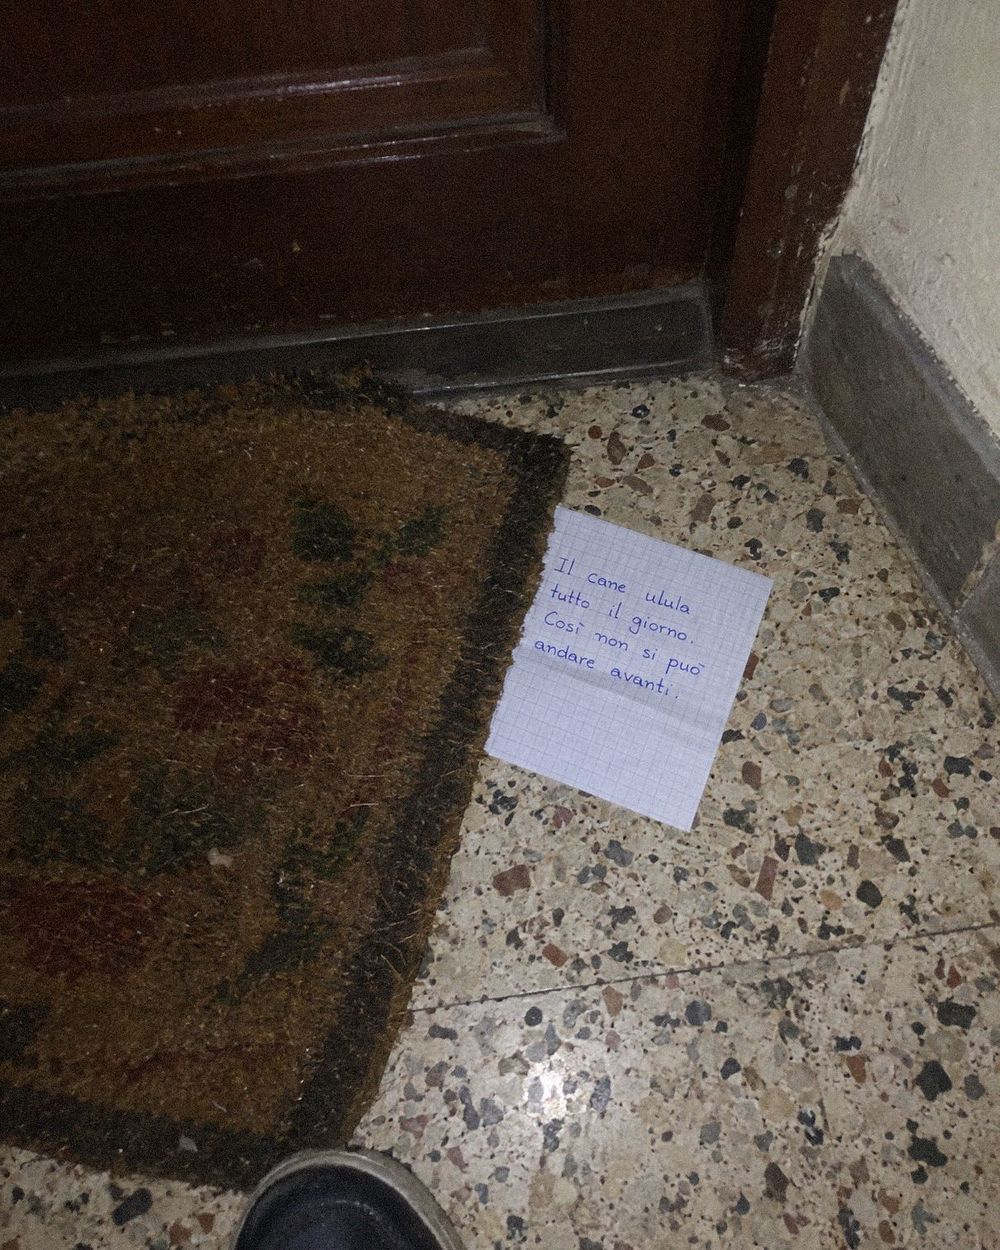 Il cane ulula
tutto il giorno.
Così non si può
andare avanti.